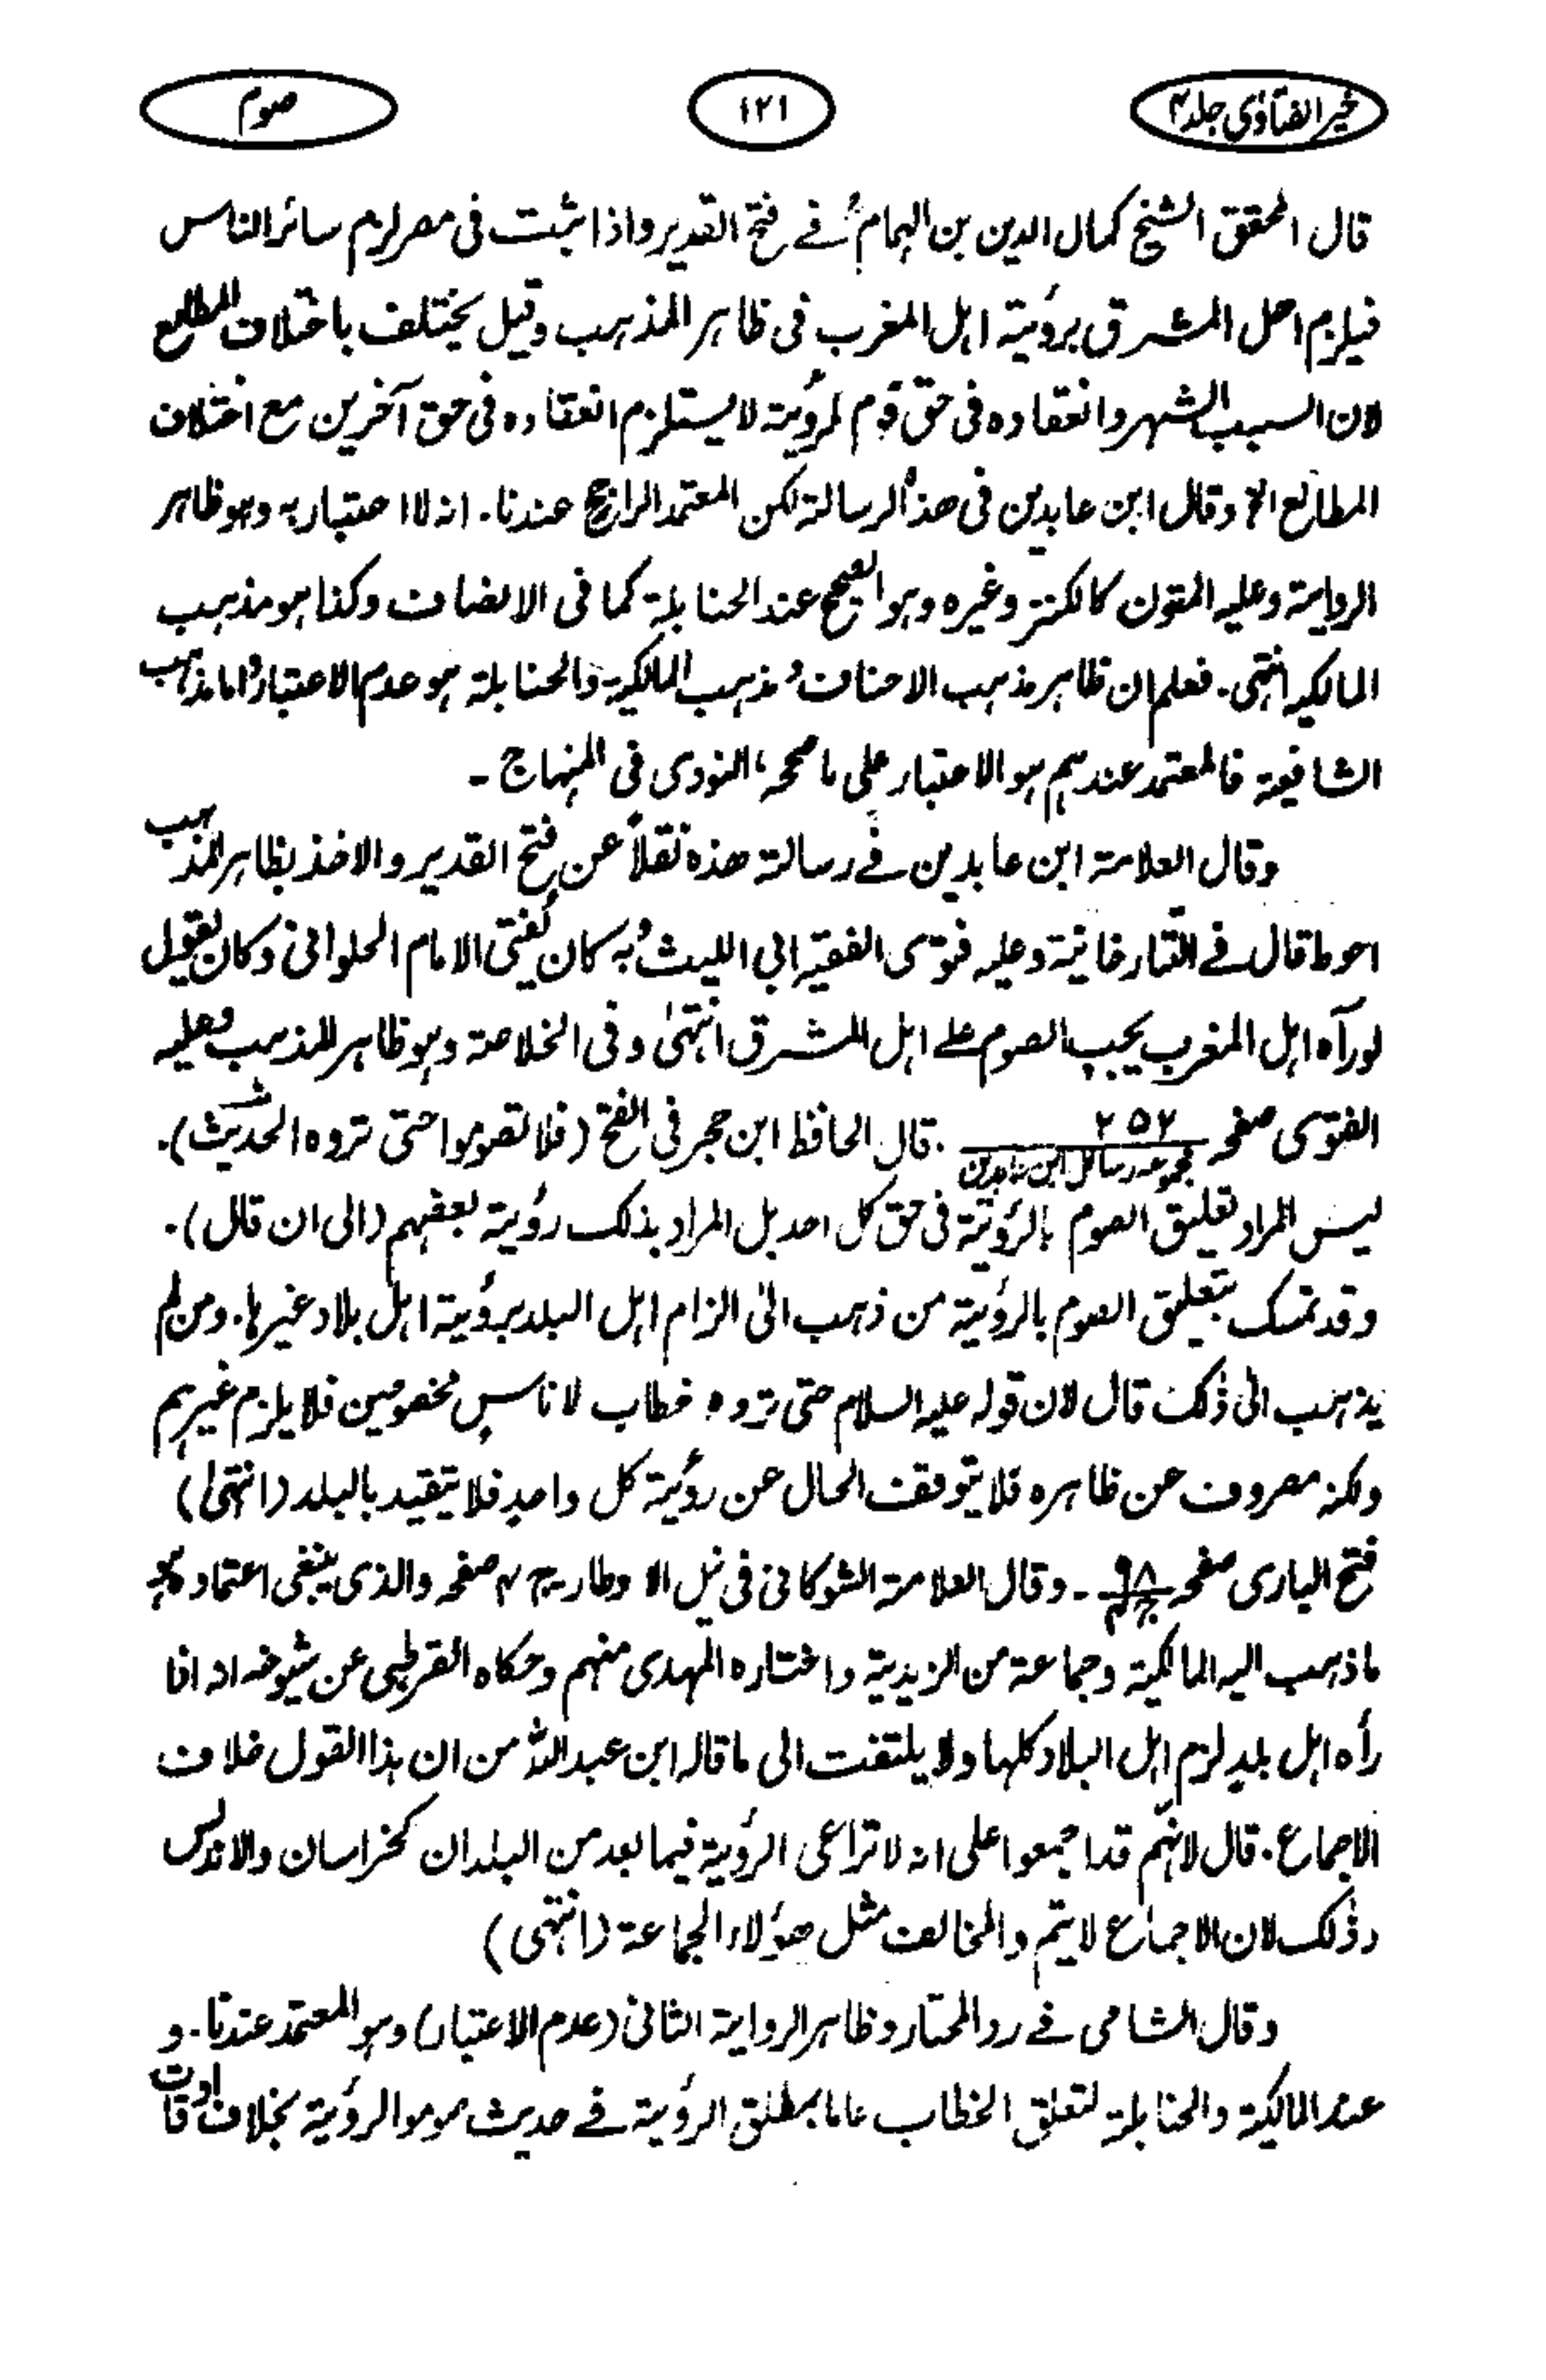 خیر الفتاوٰی جلد ۴
۱۲۱
صوم
قال المحقق الشیخ کمال الدین بن الہمامؒ فے فتح القدیر واذا ثبت فی مصر لزم سائر الناس
فیلزم اھل المشرق برؤیۃ اہل المغرب فی ظاہر المذہب وقیل یختلف باختلاف المطالع
لان السبب الشہر وانعقادہ فی حق قوم لمرؤیۃ لا یستلزم انعقادہ فی حق آخرین مع اختلاف
المطالع الخ وقال ابن عابدین فی ھذا الرسالۃ لکن المعتمد الراجح عندنا۔ انہ لا اعتبار بہ وہو ظاہر
الروایۃ وعلیہ المتون کالکنز وغیرہ وہو الصحیح عند الحنابلۃ کما فی الانصاف وکذا ہو مذہب
المالکیہ انتہی۔ فعلم ان ظاہر مذہب الاحناف و مذہب المالکیۃ والحنابلۃ ہو عدم الاعتبار واما مذہب
الشافیعۃ فالمعتمد عندہم ہو الاعتبار علی ما صححہ، النووی فی المنہاج ۔
وقال العلامۃ ابن عابدین فے رسالۃ ھذہ نقلاً عن فتح القدیر والاخذ بظاہر المذہب
احوط قال فے التتارخانیۃ وعلیہ فتوی الفقیہ ابی اللیث وبہ کان یفتی الامام الحلوانی وکان یقول
لو رآہ اہل المغرب یجب الصوم علے اہل المشرق انتہیٰ وفی الخلاصۃ وہو ظاہر المذہب وعلیہ
الفتوی صفحہ ۲۵۲ مجموعہ رسائل ابن عابدین ۔ قال الحافظ ابن حجر فی الفتح (فلا تصوموا حتی تروہ الحدیث)۔
لیس المراد تعلیق الصوم بالرؤیۃ فی حق کل احد بل المراد بذلک رؤیۃ بعضہم (الی ان قال)۔
وقد تمسک بتعلیق الصوم بالرؤیۃ من ذہب الیٰ الزام اہل البلد برؤیۃ اہل بلاد غیرہا۔ ومن لم
یذہب الی ذٰلک قال لان قولہ علیہ السلام حتی تروہ خطاب لاناس مخصوصین فلا یلزم غیرہم
ولکنہ مصروف عن ظاہرہ فلا یتوقف الحال عن رؤیۃ کل واحد فلا یتقید بالبلد (انتہیٰ)
فتح الباری صفحہ ۹۸ ۔ وقال العلامۃ الشوکانی فی نیل الاوطار ج ۴ صفحہ والذی ینبغی اعتمادہ
ما ذہب الیہ المالکیۃ وجماعۃ من الزیدیۃ واختارہ المہدی منہم وحکاہ القرطبی عن شیوخہ انہ اذا
رأہ اہل بلد لزم اہل البلاد کلہا ولا یلتفت الی ما قالہ ابن عبد اللہ من ان ہذا القول خلاف
الاجماع۔ قال لانہم قد اجمعوا علی انہ لا تراعی الرؤیۃ فیما بعد من البلدان کخراسان والاندلس
وذٰلک لان الاجماع لا یتم والمخالف مثل ھؤلاء الجماعۃ (انتہی)
وقال الشامی فے رد المحتار وظاہر الروایۃ الثانی (عدم الاعتبار) وہو المعتمد عندنا۔ و
عند المالکیۃ والحنابلۃ لتعلق الخطاب عاما بمطلق الرؤیۃ فے حدیث صوموا لرؤیۃ بخلاف اوقات